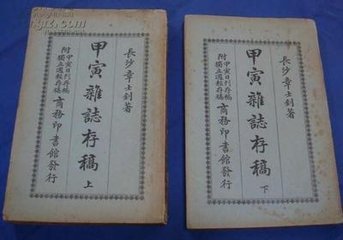 長沙章士釗著
甲寅雜誌存稿 上
附甲寅日刊存稿
獨立週報存稿
商務印書館發行
長沙章士釗著
甲寅雜誌存稿 下
附甲寅日刊存稿
獨立週報存稿
商務印書館發行